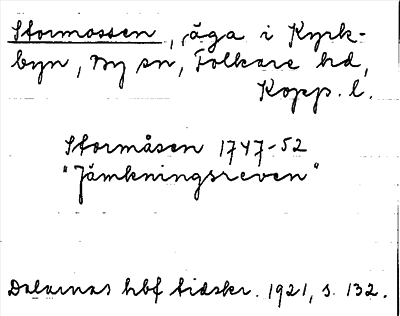 Stormossen, äga i Kyrk-
byn, By sn, Folkare hd,
Kopp. l.
Stormåsen 1747-52
"Jämkningsreven"
Dalarnas hbf tidskr. 1921, s. 132.